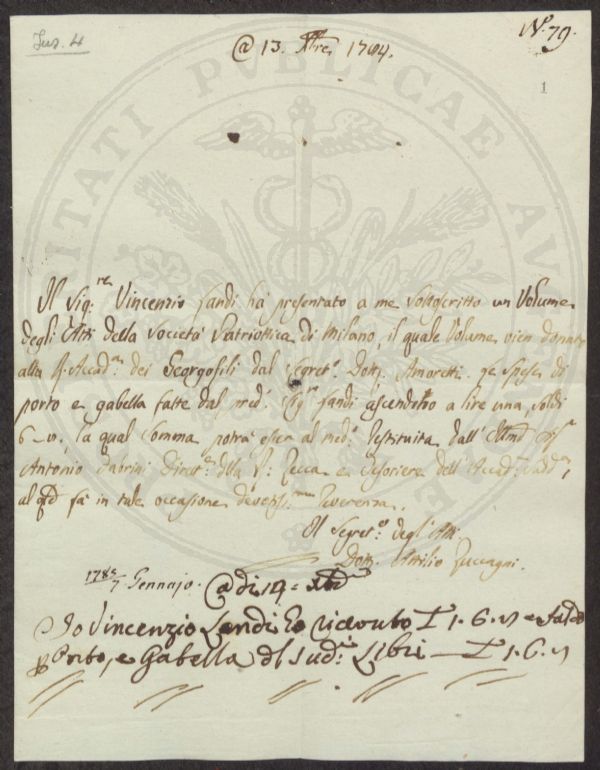 Ins. 4
N.º 79.
@ 13. Xbre 1784.
1
Il Sig.re Vincenzio Landi ha presentato a me sottoscritto un Volume
degli Atti della Società Patriottica di Milano, il quale Volume vien donato
alla R. Accad.a dei Georgofili dal Segret.o Dott. Amoretti. Le spese di
porto e gabella fatte dal med.o Sig.r Landi ascendono a lire una, soldi
6 la qual somma potrà esser al med.o restituita dall'
Antonio Fabrini Dirett.e della R. Zecca e Tesoriere dell'Accad.a sudd.a,
al fa in tale occasione devotiss.ma reverenza.
Il Segret.o degl'Atti
Dott. Attilio Zuccagni.
1785/7 Gennajo. @ di 14 = Xbre
Io Vincenzio Landi ò ricevuto £ 1.6.
Porto, e Gabella di sud.i Libri — £ 1.6.
PUBLICAE